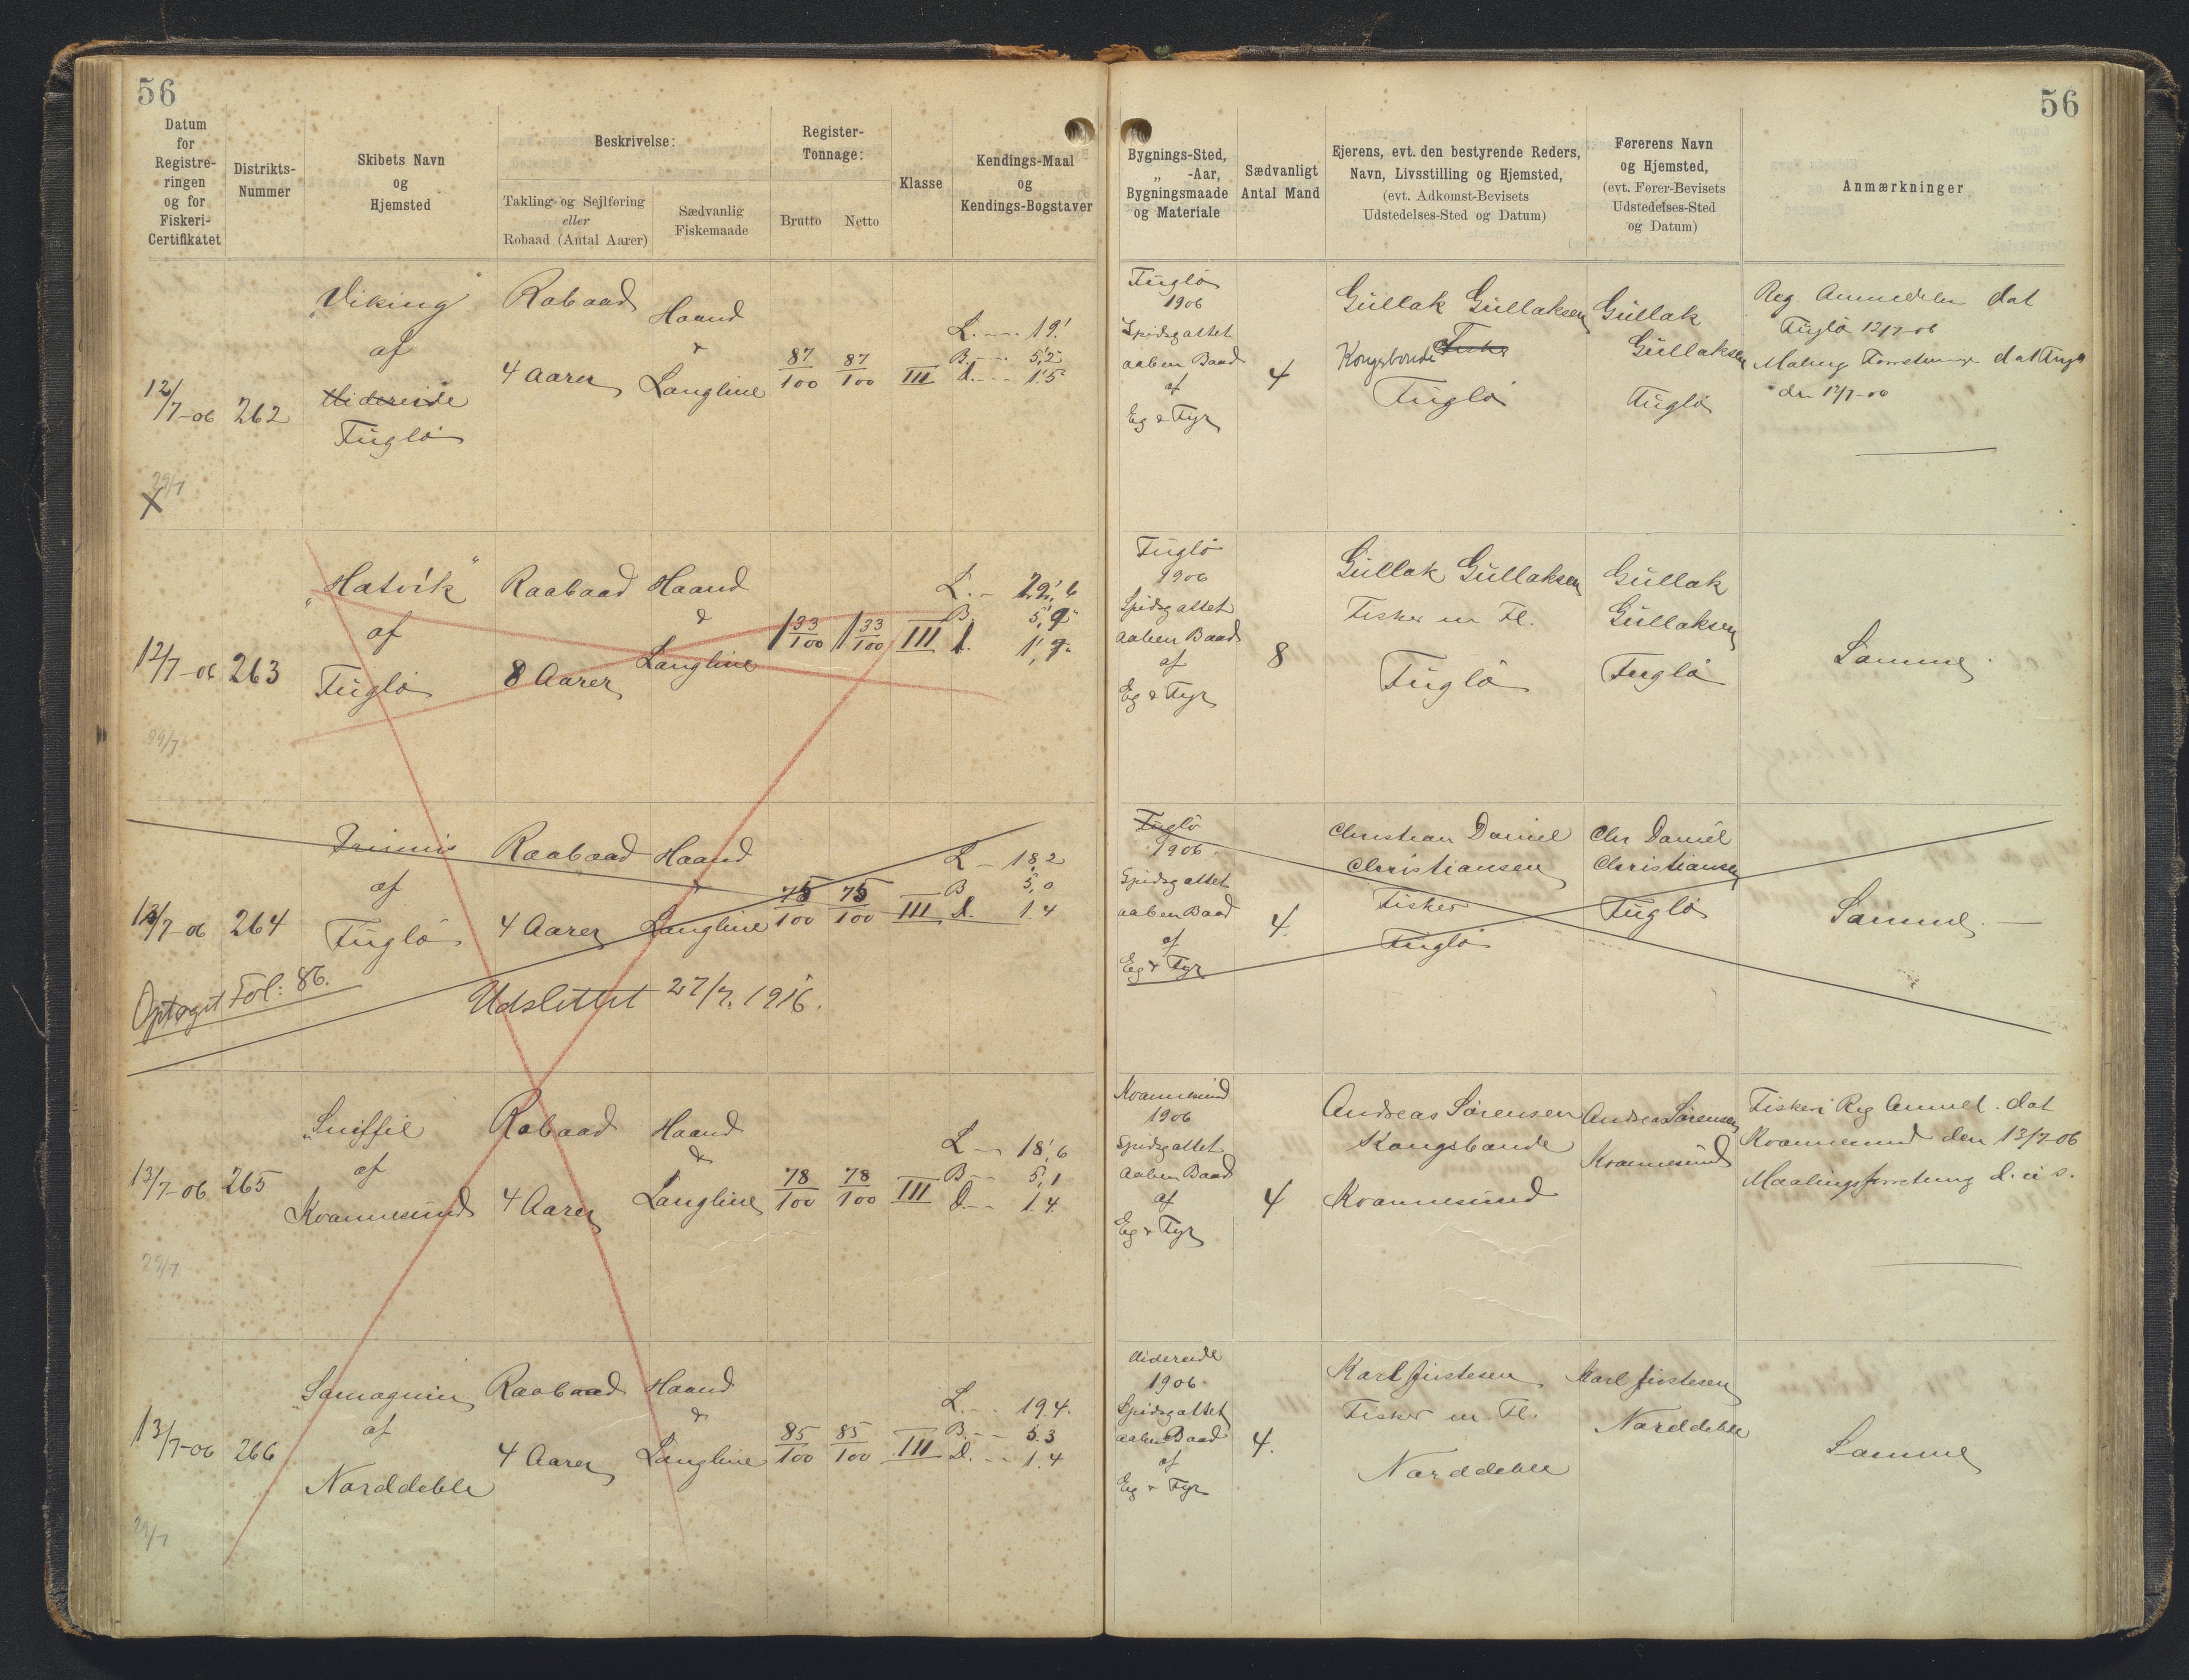 56
56
Datum
for
Registre-
ringen
og for
Fiskeri-
Certifikatet
Distrikts-
Nummer
Skibets Navn
og
Hjemsted
Beskrivelse:
Takling og Sejlføring
eller
Robaad (Antal Aarer)
Sædvanlig
Fiskemaade
Register-
Tonnage:
Brutto
Netto
Klasse
Kendings-Maal
og
Kendings-Bogstaver
Bygnings-Sted,
„ -Aar,
Bygningsmaade
og Materiale
Sædvanligt
Antal Mand
Ejerens, evt. den bestyrende Reders,
Navn, Livsstilling og Hjemsted,
(evt. Adkomst-Bevisets
Udstedelses-Sted og Datum)
Førerens Navn
og Hjemsted,
(evt. Fører-Bevisets
Udstedelses-Sted
og Datum)
Anmærkninger
12/7-06
262
„Viking"
af
Videreide
Fuglö
Robaad
4 Aarer
Haand
&
Langline
87/100
87/100
III
L. 19'
B. 5,2
d. 1.5
29/7
X
Fuglö
1906
Spidsgattet
aaben Baad
af
Eg & Fyr
4
Gullak Gullaksen
Kongsbonde Fisker
Fuglö
Gullak
Gullaksen
Fuglö
Reg. Anmeldelse dat
Fuglö 12/7-06
den 12/7-06
12/7-06
263
„Hatvik"
af
Fuglö
Raabaad
8 Aarer
Haand
&
Langline
1 33/100
1 33/100
III
L. 22,6
B. 5,9
d. 1,7
29/7
Fuglö
1906
Spidsgattet
aaben Baad
af
Eg & Fyr
8
Gullak Gullaksen
Fisker m Fl.
Fuglö
Gullak
Gullaksen
Fuglö
Samme.
13/7-06
264
af
Fuglö
Raabaad
4 Aarer
Haand
&
Langline
75/100
75/100
III
L 18,2
B 5,0
d. 1.4
Optaget Fol: 86.
Udslettet 27/7. 1916.
Fuglö
1906.
Spidsgattet
aaben Baad
af
Eg & Fyr
4.
Christian Daniel
Christiansen
Fisker
Fuglö
Chr Daniel
Christiansen
Fuglö
Samme.
13/7-06
265
af
Kvannesund
Robaad
4 Aarer
Haand
&
Langline
78/100
78/100
III
L 18,6
B 5,1
D. 1.4
29/7
Kvannesund
1906
Spidsgattet
aaben Baad
af
Eg & Fyr
4
Andreas Sörensen
Kongsbonde
Kvannesund
Andreas Sörensen
Kvannesund
Fiskeri Reg Anmel. dat
Kvannesund den 13/7-06
Maalingsforretning d. u s.
13/7-06
266
af
Norddeble
Raabaad
4 Aarer
Haand
&
Langline
85/100
85/100
III
L. 19.4.
B. 5.3
D. 1.4
29/7
Videreide
1906.
Spidsgattet
aaben Baad
af
Eg & Fyr
4.
Karl Justesen
Fisker m. Fl.
Norddeble
Karl Justesen
Norddeble
Samme